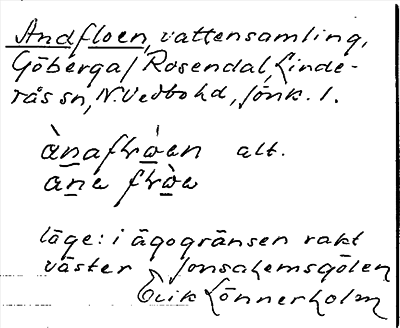 Andfloen, vattensamling,
Göberga / Rosendal, Linde-
rås sn, N. Vedbo hd, Jönk. l.
ànaflròen alt.
ane flròe
läge: i ägogränsen rakt
väster Jonsahemsgölen
Erik Lönnerholm